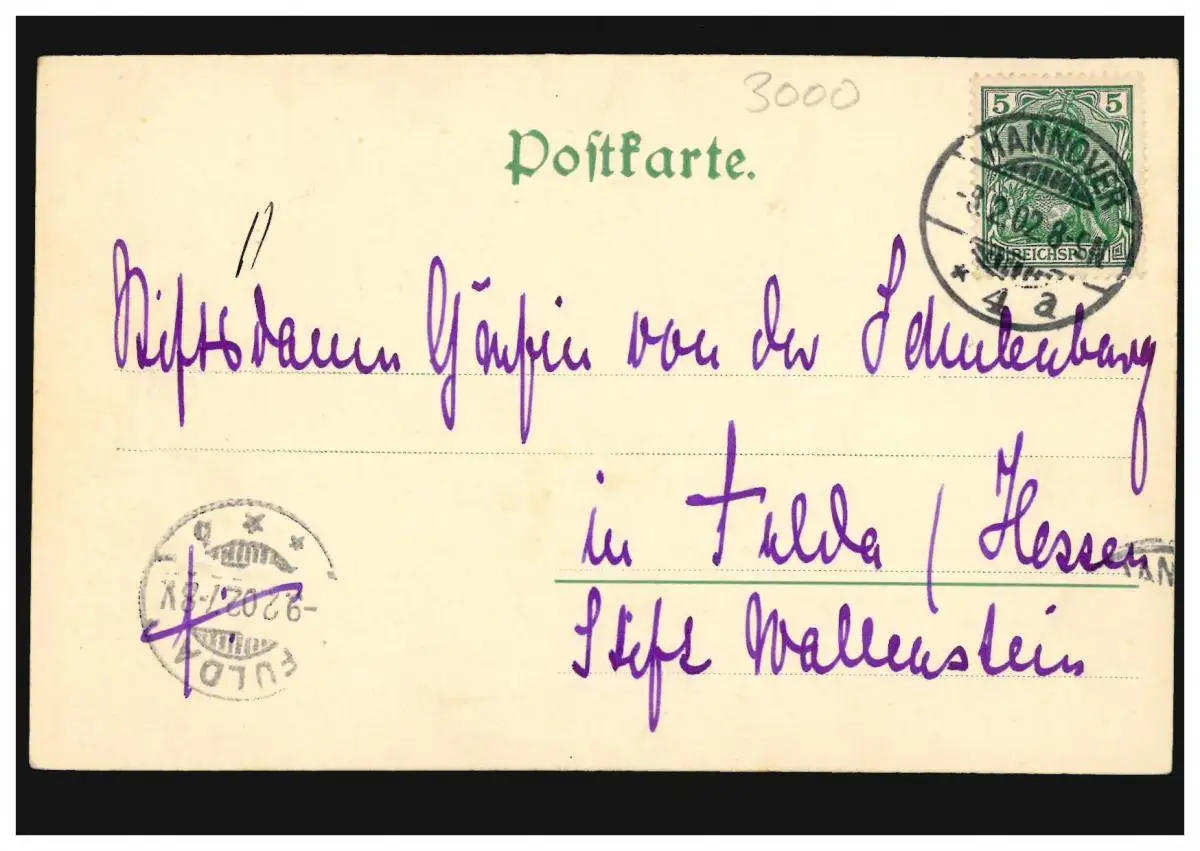 3000
Postkarte.
5 5
REICHSPOST
HANNOVER
-8.2.02.8-9N
* 4 a
Stiftsdame Gräfin von der Schulenburg
in Fulda / Hessen
Stift Wallenstein
FULDA
-9.2.02.7-8V
HAN